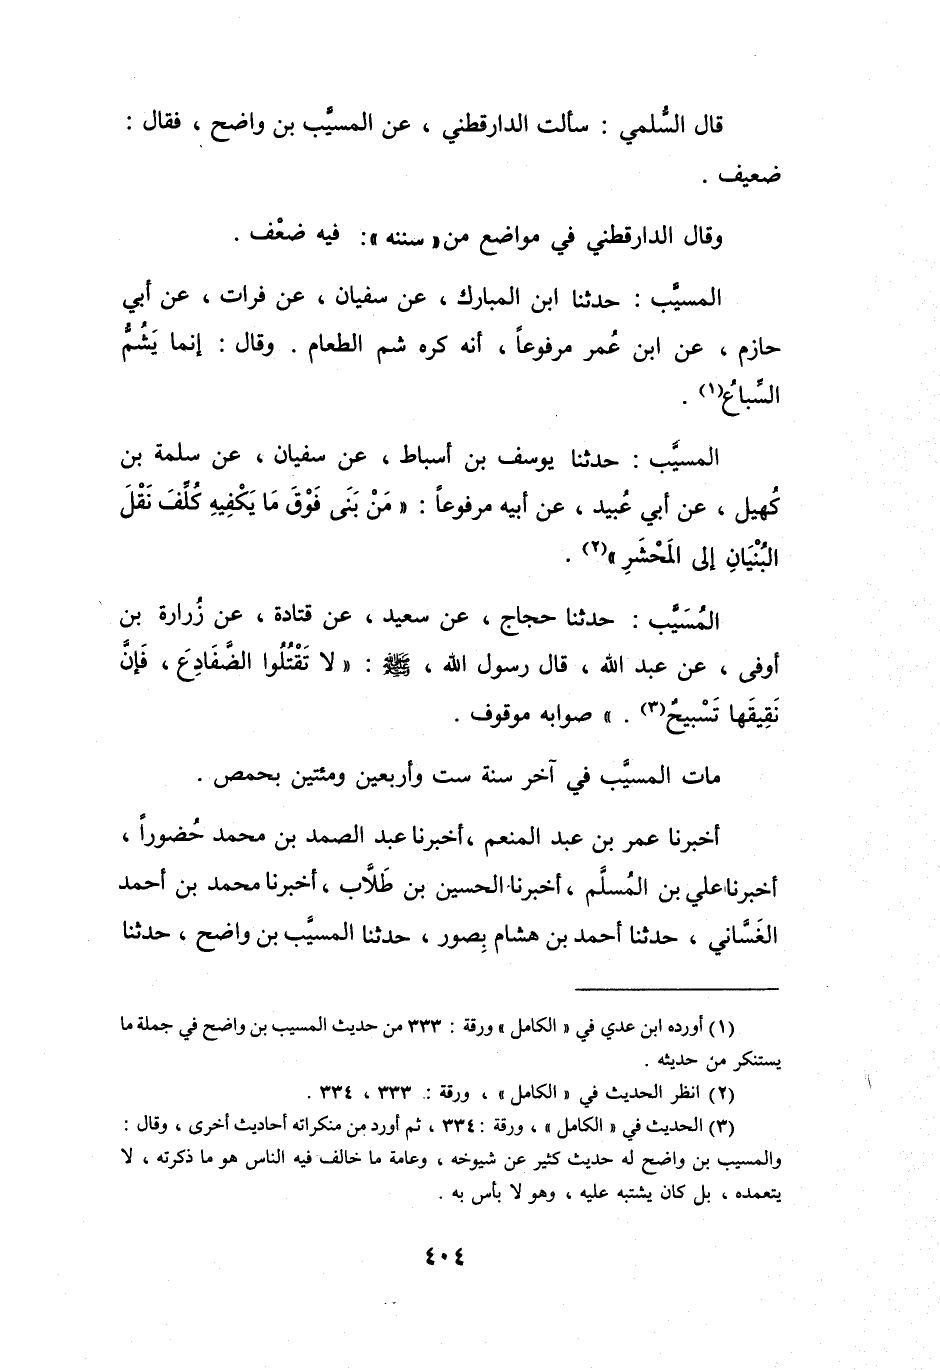 قال السُّلمي : سألت الدارقطني ، عن المسيَّب بن واضح ، فقال :
ضعيف .
وقال الدارقطني في مواضع من « سننه » : فيه ضعْف .
المسيَّب : حدثنا ابن المبارك ، عن سفيان ، عن فرات ، عن أبي
حازم ، عن ابن عُمر مرفوعاً ، أنه كره شم الطعام . وقال : إنما يَشُمُّ
السِّباعُ(١) .
المسيَّب : حدثنا يوسف بن أسباط ، عن سفيان ، عن سلمة بن
كُهيل ، عن أبي عُبيد ، عن أبيه مرفوعاً : « مَنْ بَنَى فَوْقَ مَا يَكْفِيهِ كُلِّفَ نَقْلَ
البُنْيَانِ إلى المَحْشَرِ »(٢) .
المُسَيَّب : حدثنا حجاج ، عن سعيد ، عن قتادة ، عن زُرارة بن
أوفى ، عن عبد الله ، قال رسول الله ، ﷺ : « لا تَقْتُلُوا الضَّفَادِعَ ، فَإنَّ
نَقِيقَها تَسْبيحٌ(٣) . » صوابه موقوف .
مات المسيَّب في آخر سنة ست وأربعين ومئتين بحمص .
أخبرنا عمر بن عبد المنعم ، أخبرنا عبد الصمد بن محمد حُضوراً ،
أخبرنا علي بن المُسلَّم ، أخبرنا الحسين بن طَلَّاب ، أخبرنا محمد بن أحمد
الغَسَّاني ، حدثنا أحمد بن هشام بِصور ، حدثنا المسيَّب بن واضح ، حدثنا
(١) أورده ابن عدي في « الكامل » ورقة : ٣٣٣ من حديث المسيب بن واضح في جملة ما
يستنكر من حديثه .
(٢) انظر الحديث في « الكامل » ، ورقة : ٣٣٣ ، ٣٣٤ .
(٣) الحديث في « الكامل » ، ورقة : ٣٣٤ ، ثم أورد من منكراته أحاديث أخرى ، وقال :
والمسيب بن واضح له حديث كثير عن شيوخه ، وعامة ما خالف فيه الناس هو ما ذكرته ، لا
يتعمده ، بل كان يشتبه عليه ، وهو لا بأس به .
٤٠٤